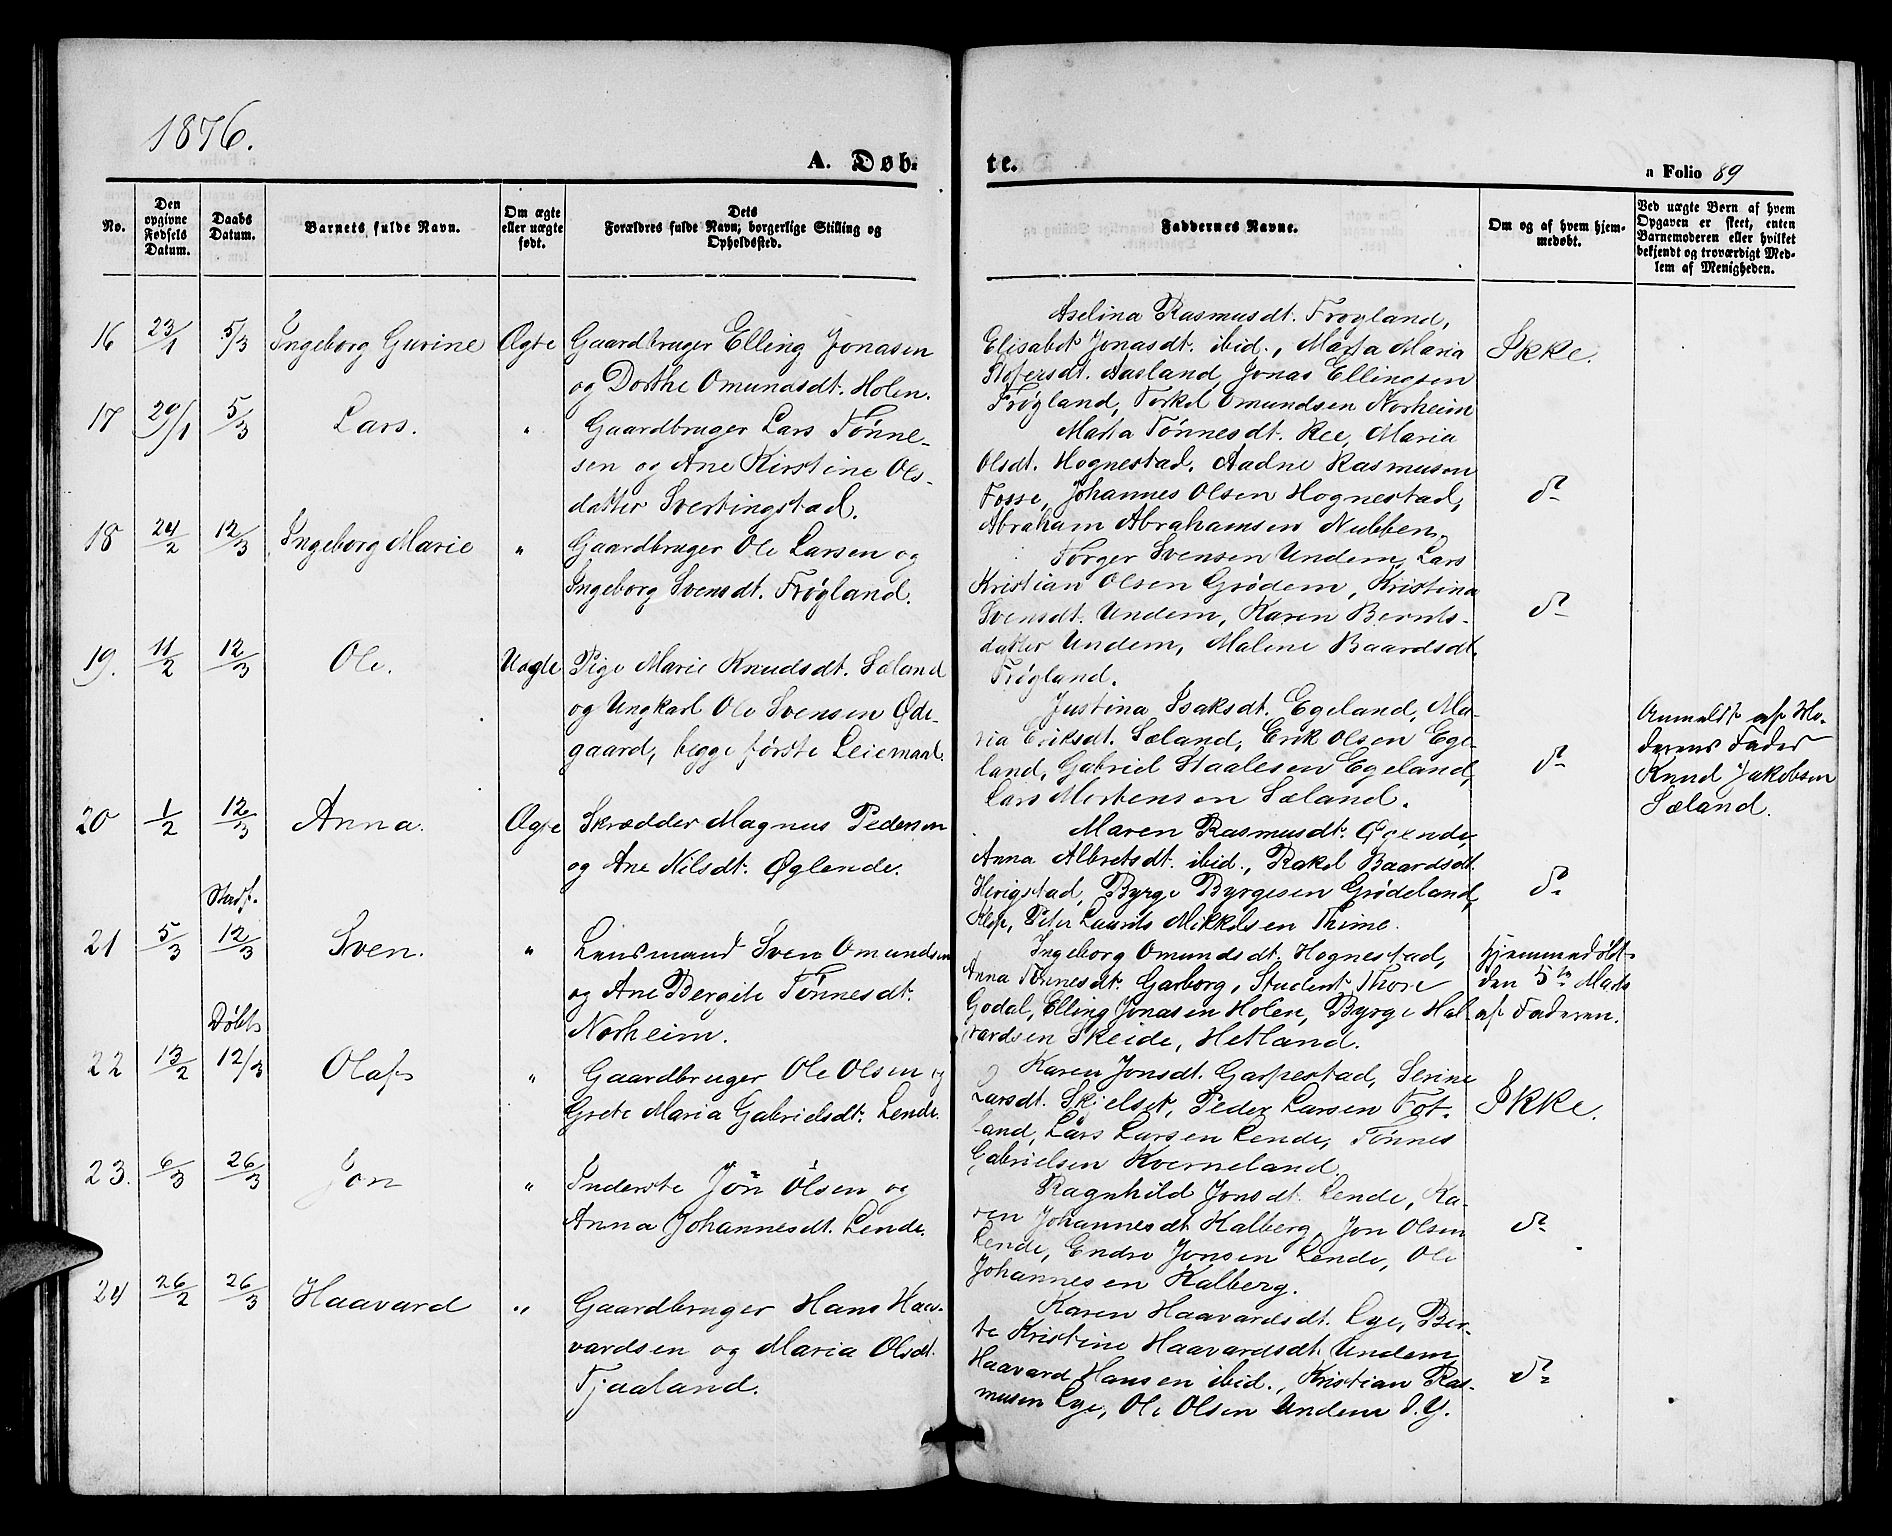 1876.
A. Døb-
te.
a Folio 89
No.
Den opgivne Fødsels Datum.
Daabs Datum.
Barnets fulde Navn.
Om ægte eller uægte født.
Dets Forældres fulde Navn, borgerlige Stilling og Opholdssted.
Faddernes Navne.
Om og af hvem hjemmedøbt.
Ved uægte Børn af hvem Opgaven er skeet, enten Barnemoderen eller hvilket bekjendt og troværdigt Medlem af Menigheden.
16 23/1 5/3 Ingeborg Gurine Ægte
Gaardbruger Elling Jonasen
og Dorthe Omundsdt. Holen.
Aselina Rasmusdt. Frøgland,
Elisabet Jonasdt. ibid., Marta Maria
Stofersdt. Aasland, Jonas Ellingsen
Frøgland, Torkel Omundsen Norheim
Ikke.
17 29/1 5/3 Lars. "
Gaardbruger Lars Tønne-
sen og Ane Kirstine Ols-
datter Svertingstad.
Marta Tønnesdt. Ree, Maria
Olsdt. Hognestad, Aadne Rasmusen
Fosse, Johannes Olsen Hognestad,
Abraham Abrahamsen Nubben.
do
18 24/2 12/3 Ingeborg Marie "
Gaardbruger Ole Larsen og
Ingeborg Svensdt. Frøgland.
Torger Svensen Undem, Lars
Kristian Olsen Grødem, Kristina
Svensdt. Undem, Karen Bernts-
datter Undem, Malene Baardsdt.
Frøgland.
do
19. 11/2 12/3 Ole. Uægte
Pige Marie Knudsdt. Sæland
og Ungkarl Ole Svensen Øde-
gaard, begge første Leiemaal.
Justina Isaksdt. Egeland, Ma-
ria Eriksdt. Sæland, Erik Olsen Ege-
land, Gabriel Staalesen Egeland,
Lars Mortensen Sæland.
do
Anmeldt af Mo-
derens Fader
Knud Jakobsen
Sæland.
20 1/2 12/3 Anna. Ægte
Skrædder Magnus Pedersen
og Ane Nilsdt. Øglende.
Maren Rasmusdt. Øglende,
Anna Albretsdt. ibid., Rakel Baardsdt.
Herigstad, Byrge Byrgesen Grødeland,
Klep, Peter Laurits Mikkelsen Thime.
do
Stadf.
21 5/3 12/3 Sven. "
Lensmand Sven Omundsen
og Ane Bergite Tønnesdt.
Norheim.
Ingeborg Omundsdt. Hognestad,
Anna Tønnesdt. Garborg, Student Thore
Godal, Elling Jonasen Holen, Byrge Hal-
vardsen Skeide, Hetland.
Hjemmedøbt
den 5te Marts
af Faderen.
Døbt
22 13/2 12/3 Olaf "
Gaardbruger Ole Olsen og
Grete Maria Gabrielsdt. Lende.
Karen Jonsdt. Garpestad, Serine
Larsdt. Skjelset, Peder Larsen Fot-
land, Lars Larsen Lende, Tønnes
Gabrielsen Kverneland.
Ikke.
23. 6/3 26/3 Jon "
Inderste Jon Olsen og
Anna Johannesdt. Lende.
Ragnhild Jonsdt. Lende, Ka-
ren Johannesdt. Kalberg, Jon Olsen
Lende, Endre Jonsen Lende, Ole
Johannesen Kalberg.
do
24 26/2 26/3 Haavard "
Gaardbruger Hans Haa-
vardsen og Maria Olsdt.
Tjaaland.
Karen Haavardsdt. Lye, Ber-
te Kristine Haavardsdt. Undem,
Haavard Hansen ibid., Kristian Ras-
musen Lye, Ole Olsen Undem d. Y.
do